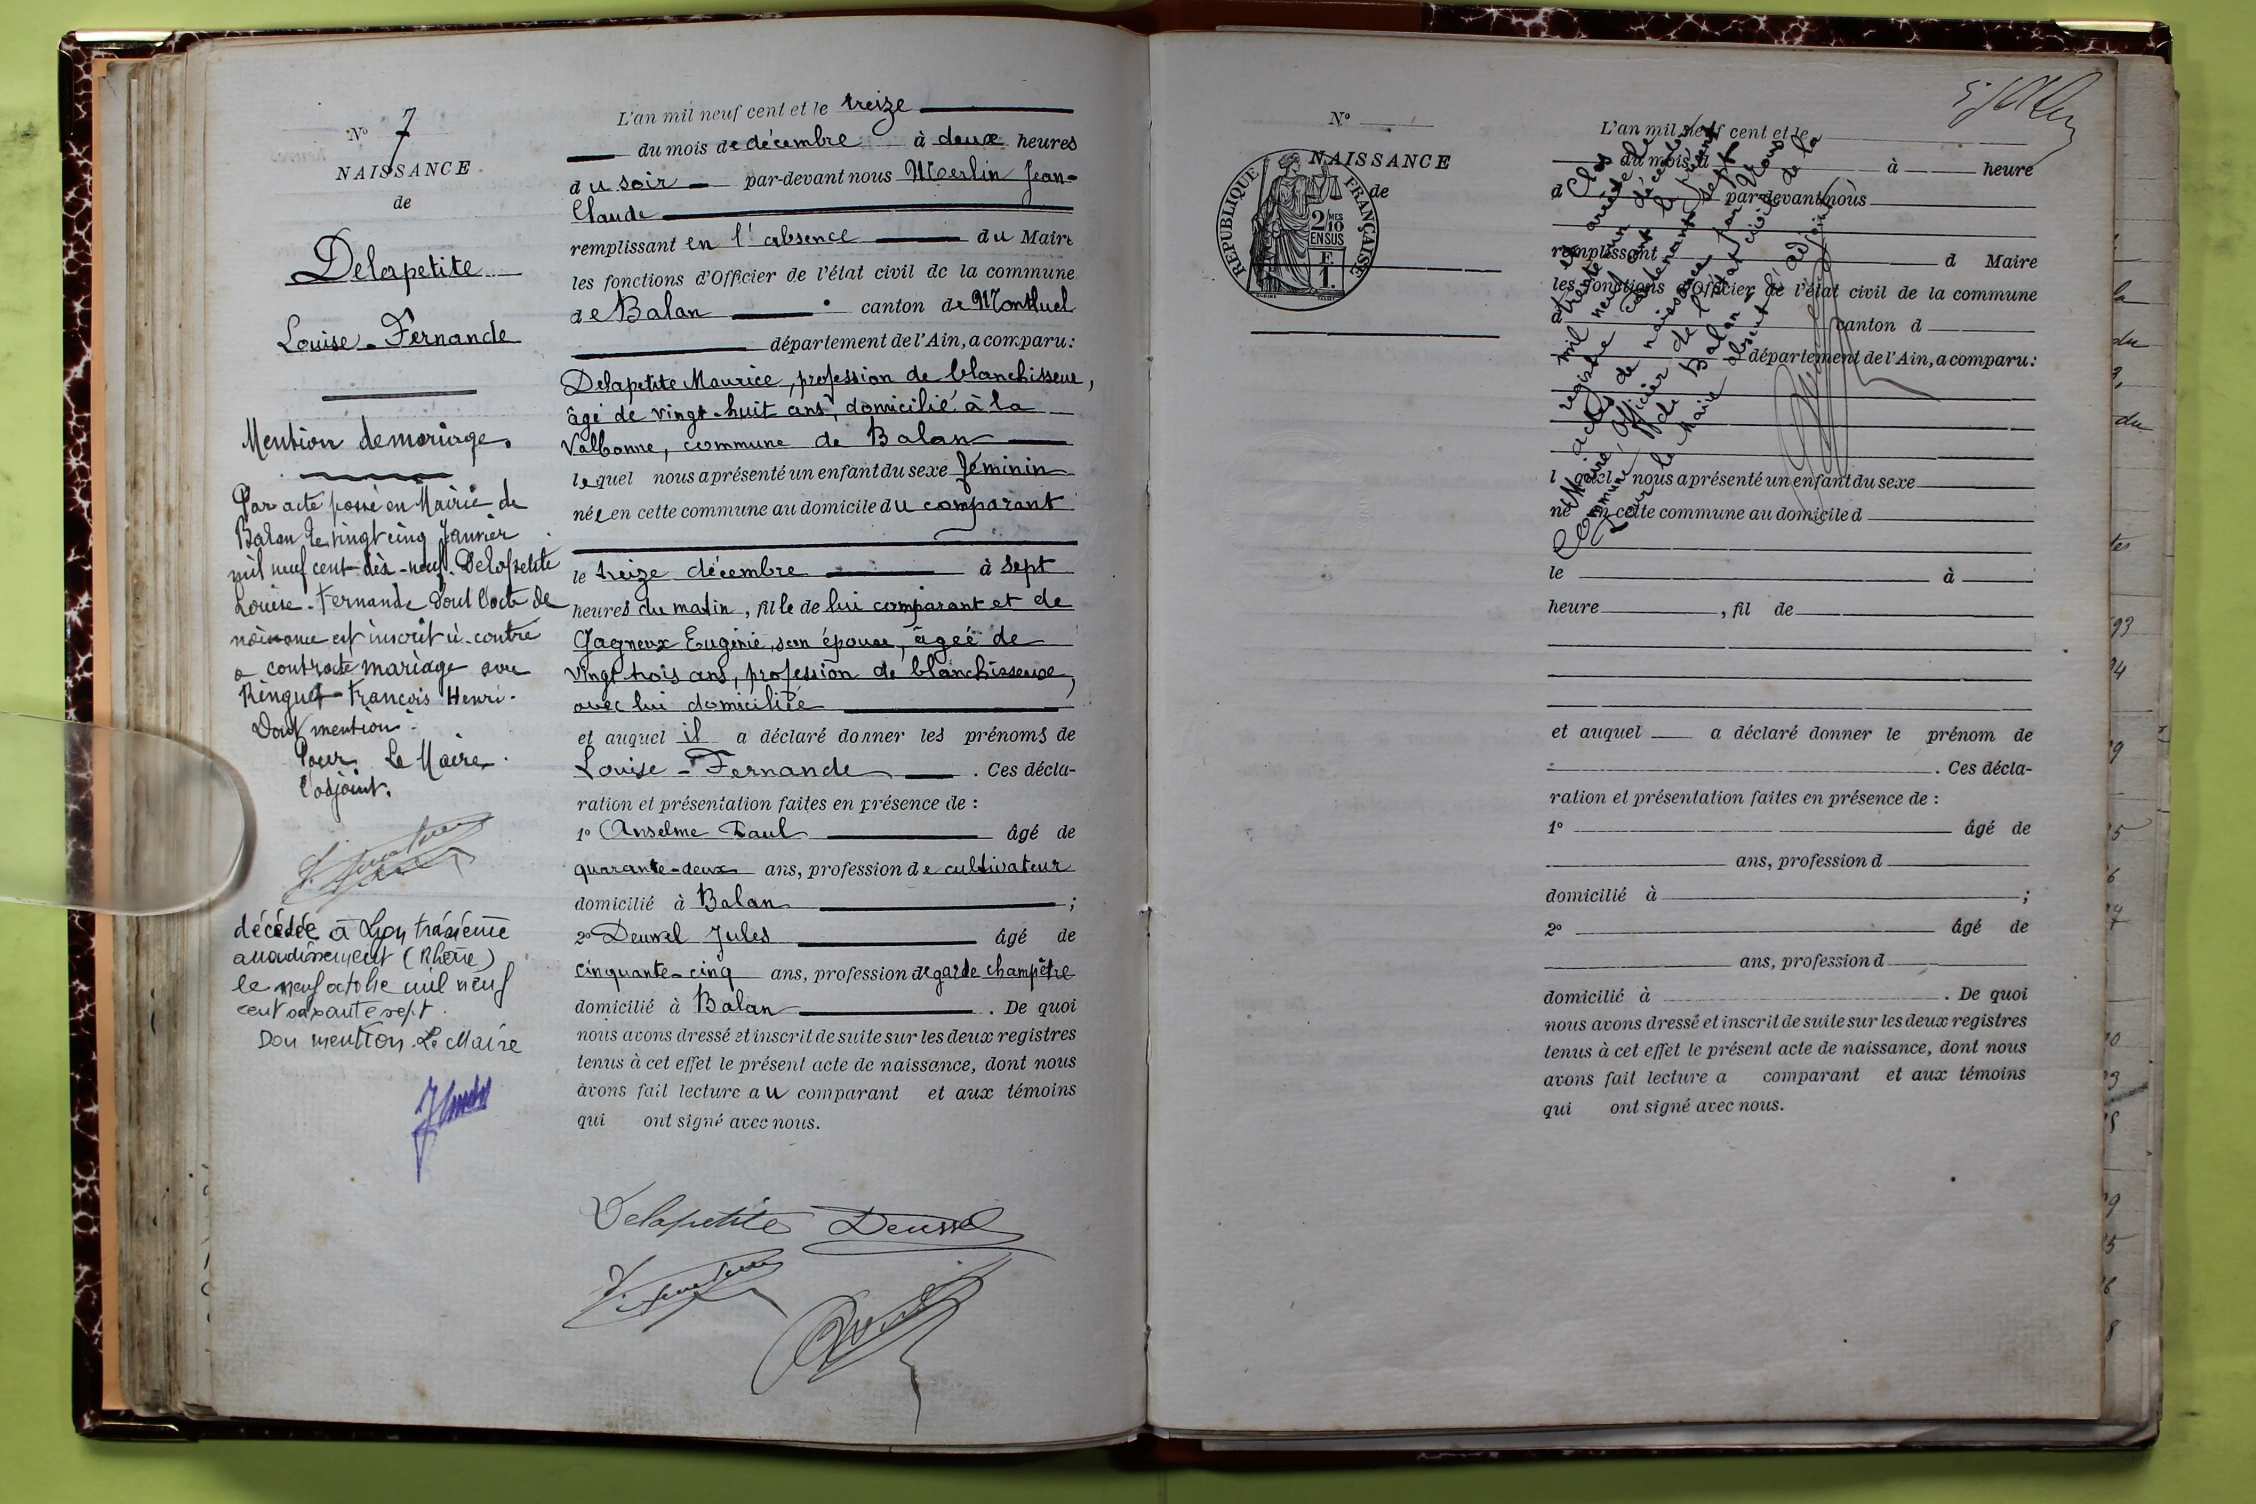 N° 7
NAISSANCE
de
Delapetite
Louise-Fernande
Mention de mariage.
Par acte passé en Mairie de
Balan le vingt cinq Janvier
mil neuf cent dix-neuf. Delapetite
Louise-Fernande dont l'acte de
naissance est inscrit ci-contre
a contracté mariage avec
Ringuet François Henri.
Dont mention.
Pour Le Maire.
l'adjoint.
décédée à Lyon troisième
arrondissement (Rhône)
le neuf octobre mil neuf
cent soixante sept.
Don mention. Le Maire
L'an mil neuf cent et le treize
du mois de décembre à deux heures
du soir par-devant nous Merlin Jean-
Claude
remplissant en l'absence du Maire
les fonctions d'Officier de l'état civil de la commune
de Balan canton de Montluel
département de l'Ain, a comparu:
Delapetite Maurice, profession de blanchisseur,
âgé de vingt-huit ans, domicilié à la
Valbonne, commune de Balan
lequel nous a présenté un enfant du sexe féminin
née en cette commune au domicile du comparant
le treize décembre à sept
heures du matin, fille de lui comparant et de
Gagneux Eugénie, son épouse, âgée de
vingt trois ans, profession de blanchisseuse,
avec lui domiciliée
et auquel il a déclaré donner les prénoms de
Louise-Fernande. Ces décla-
ration et présentation faites en présence de :
1° Anselme Paul âgé de
quarante-deux ans, profession de cultivateur
domicilié à Balan ;
2° Deussel Jules âgé de
cinquante-cinq ans, profession de garde champêtre
domicilié à Balan. De quoi
nous avons dressé et inscrit de suite sur les deux registres
tenus à cet effet le présent acte de naissance, dont nous
avons fait lecture au comparant et aux témoins
qui ont signé avec nous.
Delapetite Deussel
N°
NAISSANCE
de
REPUBLIQUE FRANÇAISE
2/10 MES
EN SUS
F.
1.
L'an mil neuf cent et le
du mois d à heure
d par-devant nous
remplissant d Maire
les fonctions d'Officier de l'état civil de la commune
d canton d
département de l'Ain, a comparu:
l quel nous a présenté un enfant du sexe
né en cette commune au domicile d
le à
heure , fil de
et auquel a déclaré donner le prénom de
. Ces décla-
ration et présentation faites en présence de :
1° âgé de
ans, profession d
domicilié à ;
2° âgé de
ans, profession d
domicilié à . De quoi
nous avons dressé et inscrit de suite sur les deux registres
tenus à cet effet le présent acte de naissance, dont nous
avons fait lecture a comparant et aux témoins
qui ont signé avec nous.
Clos et arrêté le
trente un décembre
mil neuf cent le présent
registre contenant sept
actes de naissance par Nous
Maire, Officier de l'état civil de la
Commune de Balan
Pour le Maire absent, l'adjoint